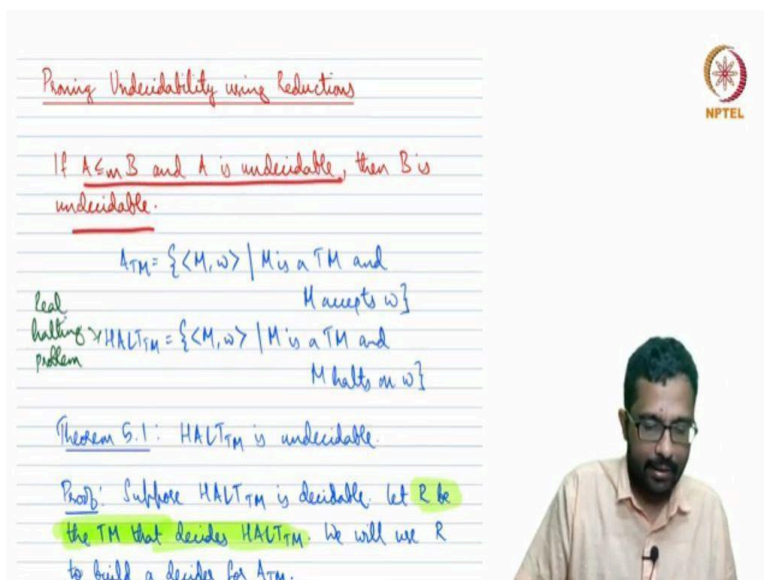 Proving Undecidability using Reductions
NPTEL
If A ≤m B and A is undecidable, then B is
undecidable.
ATM = {<M, w> | M is a TM and
M accepts w}
Real
halting
problem
HALTTM = {<M, w> | M is a TM and
M halts on w}
Theorem 5.1: HALTTM is undecidable.
Proof: Suppose HALTTM is decidable. Let R be
the TM that decides HALTTM. We will use R
to build a decider for ATM.